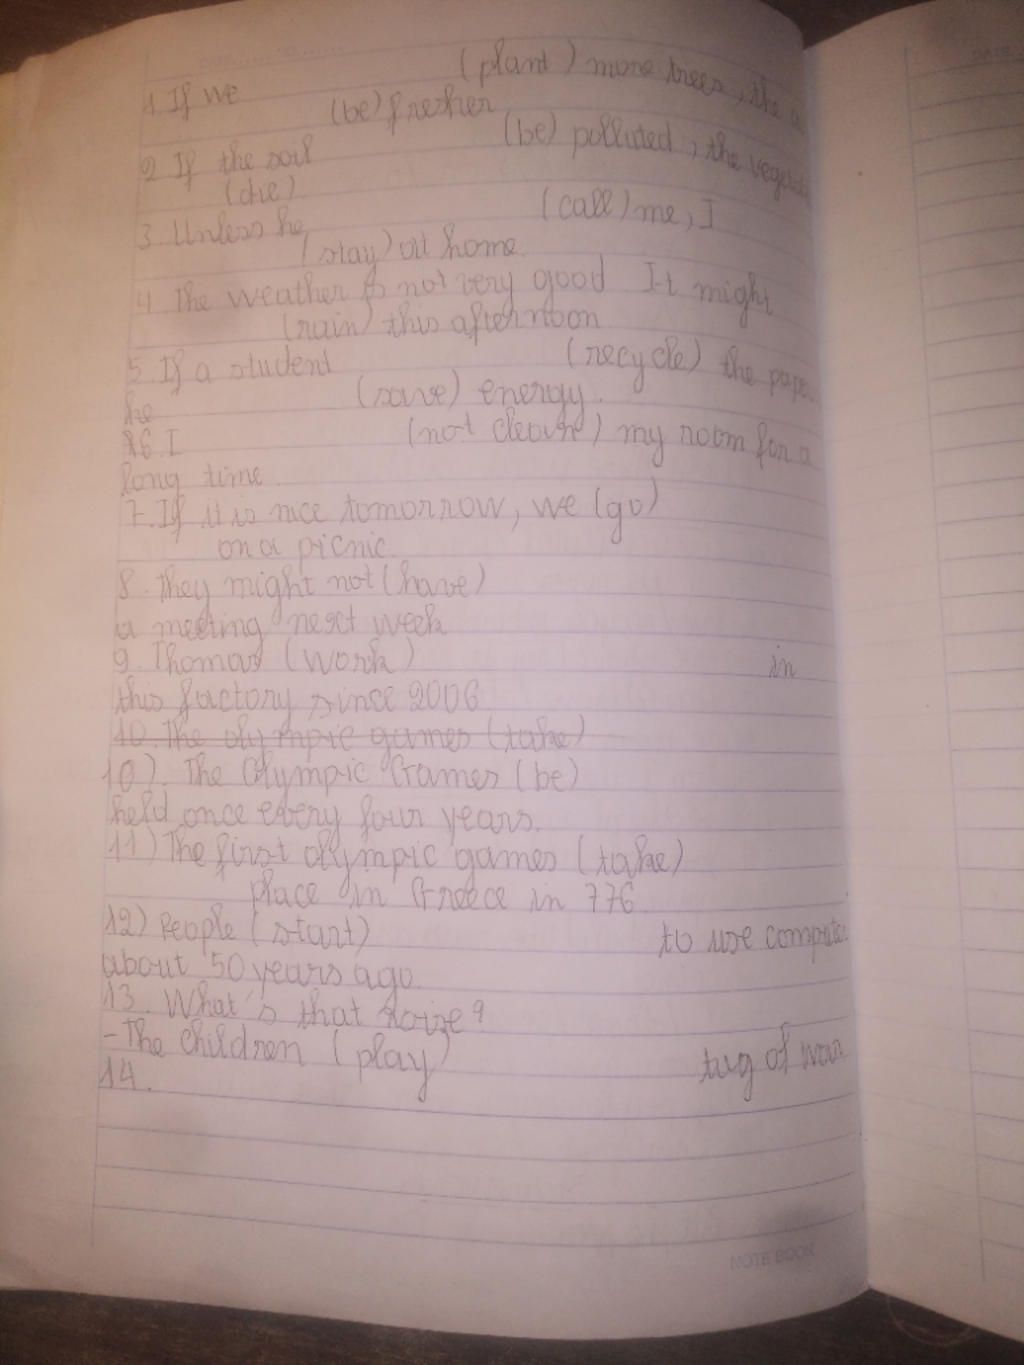 1. If we (plant) more trees, the
(be) fresher
2 If the soil (be) polluted, the
(die)
3. Unless he (call) me, I
(stay) at home.
4 The weather is not very good It might
(rain) this afternoon
5. If a student (recycle) the paper
he (save) energy.
6. I (not clean) my room for a
long time
7. If it is nice tomorrow, we (go)
on a picnic.
8. They might not (have)
a meeting next week
9. Thomas (work) in
this factory since 2006
10. The olympic games (take)
10). The Olympic Games (be)
held once every four years.
11) The first olympic games (take)
place in Greece in 776
12) People (start) to use computer
about 50 years ago.
13. What's that noize?
- The children (play) tug of war
14.
NOTE BOOK
DATE